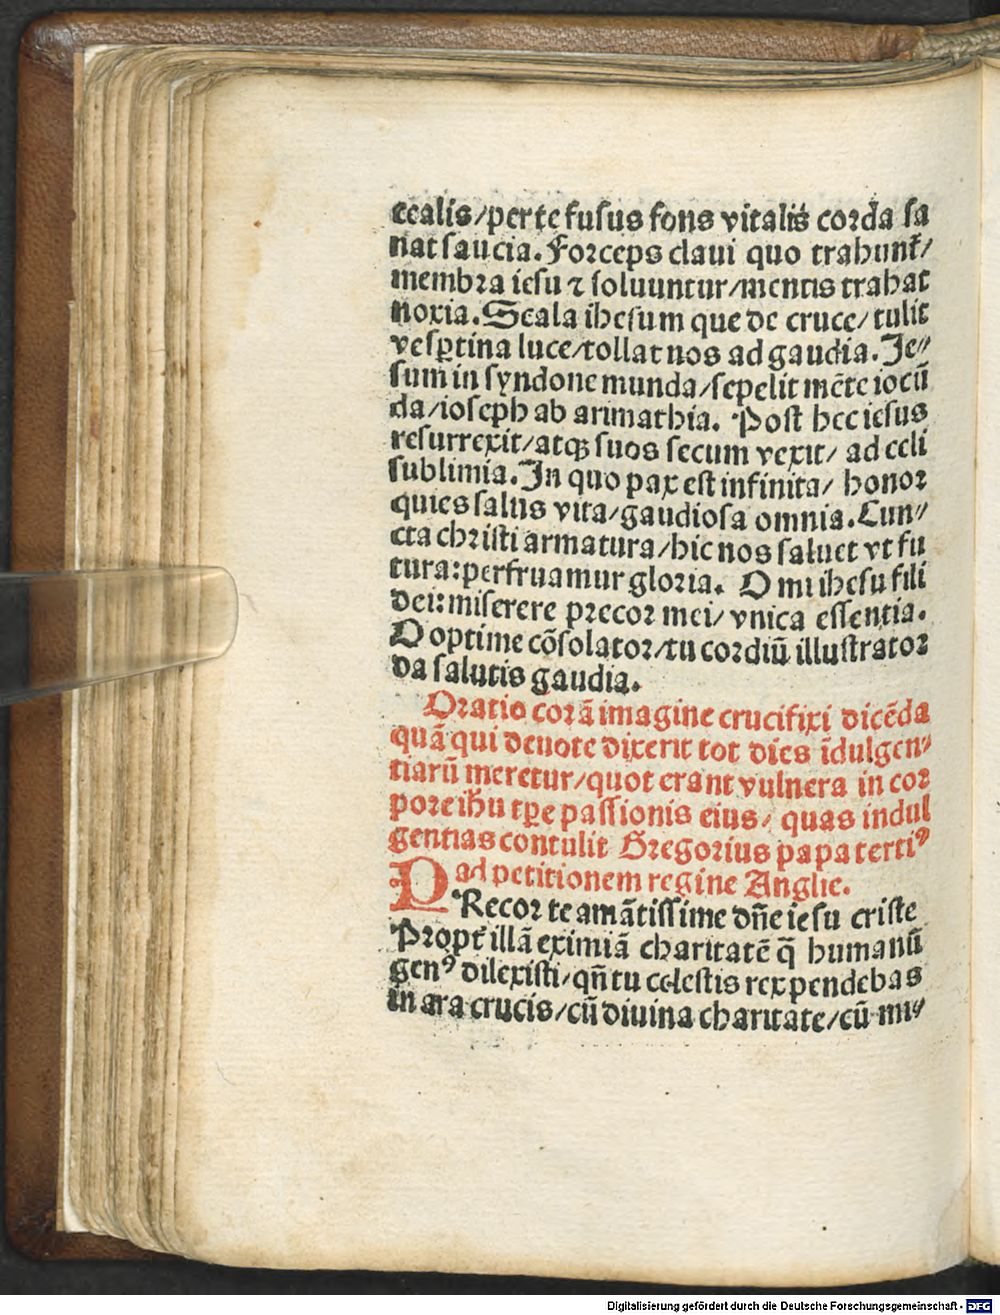 cealis/per te fusus fons vitalis corda sa
nat saucia. Forceps claui quo trahunt᷑/
membra iesu ⁊ soluuntur/mentis trahat
noxia. Scala ihesum que de cruce/tulit
vesꝑtina luce/tollat nos ad gaudia. Je⸗
sum in syndone munda/sepelit mēte iocū
da/ioseph ab arimathia. Post hec iesus
resurrexit/atqꝫ suos secum vexit/ ad celi
sublimia. In quo pax est infinita/ honor
quies salus vita/gaudiosa omnia. Cun⸗
cta christi armatura/hic nos saluet vt fu
tura: perfruamur gloria. O mi ihesu fili
dei: miserere precor mei/ vnica essentia.
O optime cōsolator/tu cordiū illustrator
da salutis gaudia.
Oratio corā imagine crucifixi dicēda
quā qui deuote dixerit tot dies īdulgen⸗
tiarū meretur/quot erant vulnera in cor
pore ihū tꝑe passionis eius/ quas indul
gentias contulit Gregorius papa tertiꝰ
ad petitionem regine Anglie.
PRecor te amātissime dn̄e iesu criste
Propt᷑ illā eximiā charitatē q̄ humanū
genꝰ dilexisti/qn̄ tu celestis rex pendebas
in ara crucis/cū diuina charitate/cū mi⸗
Digitalisierung gefördert durch die Deutsche Forschungsgemeinschaft - DFG